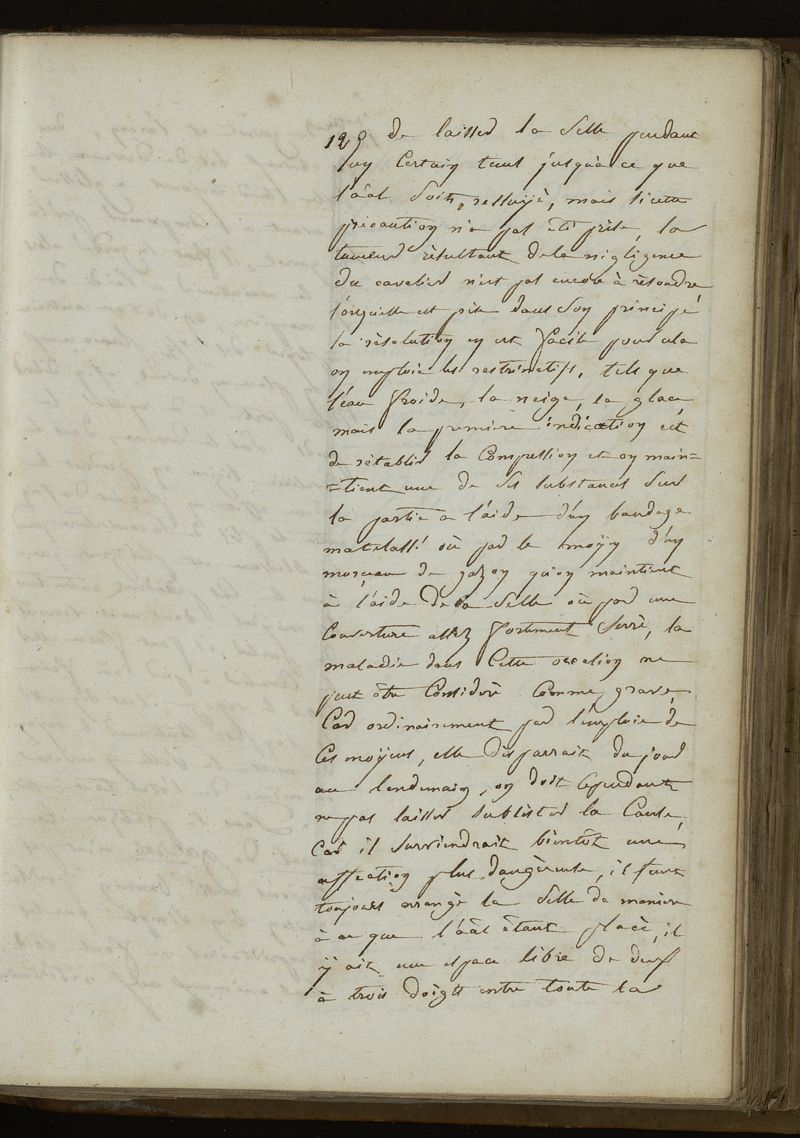 129 de laisser la selle pendant
uy Certain tems jusqu'à ce que
l'âal soit, ressuÿé, mais si cette
précaution n'a pas été prise, la
tumeur résultant de la négligence
du cavalier n'est pas encore à résoudre
lorsqu'elle est prise dans soy principe
la résolution ey est facile pour cela
oy emploie les restrinctifs, tels que
l'eau froide, la neige, la glace
mais la première indication est
de rétablir la Compression et oy main=
=tient une de ses substances sur
la partie a l'aide d'uy bandage
matelassé où par le moÿey d'uy
morceau de gazoy qu'oy maintient
à l'aide de la selle où par une
Couverture assez fortement serré, la
maladie dans Cette occasioy ne
peut être Considéré Comme grave,
Car ordinairement par l'emploie de
Ces moÿens, elle disparrait du jour
au lendemaiy, oy doit Cependant
ne pas laisser subsister la Cause,
Car il surviendrait bientôt une
affectioy plus dangèreuse, il faut
toujours arrangé la selle de manière
à ce que l'âal étant placé, il
ÿ ait une espace libre de deux
à trois doigts entre toute la